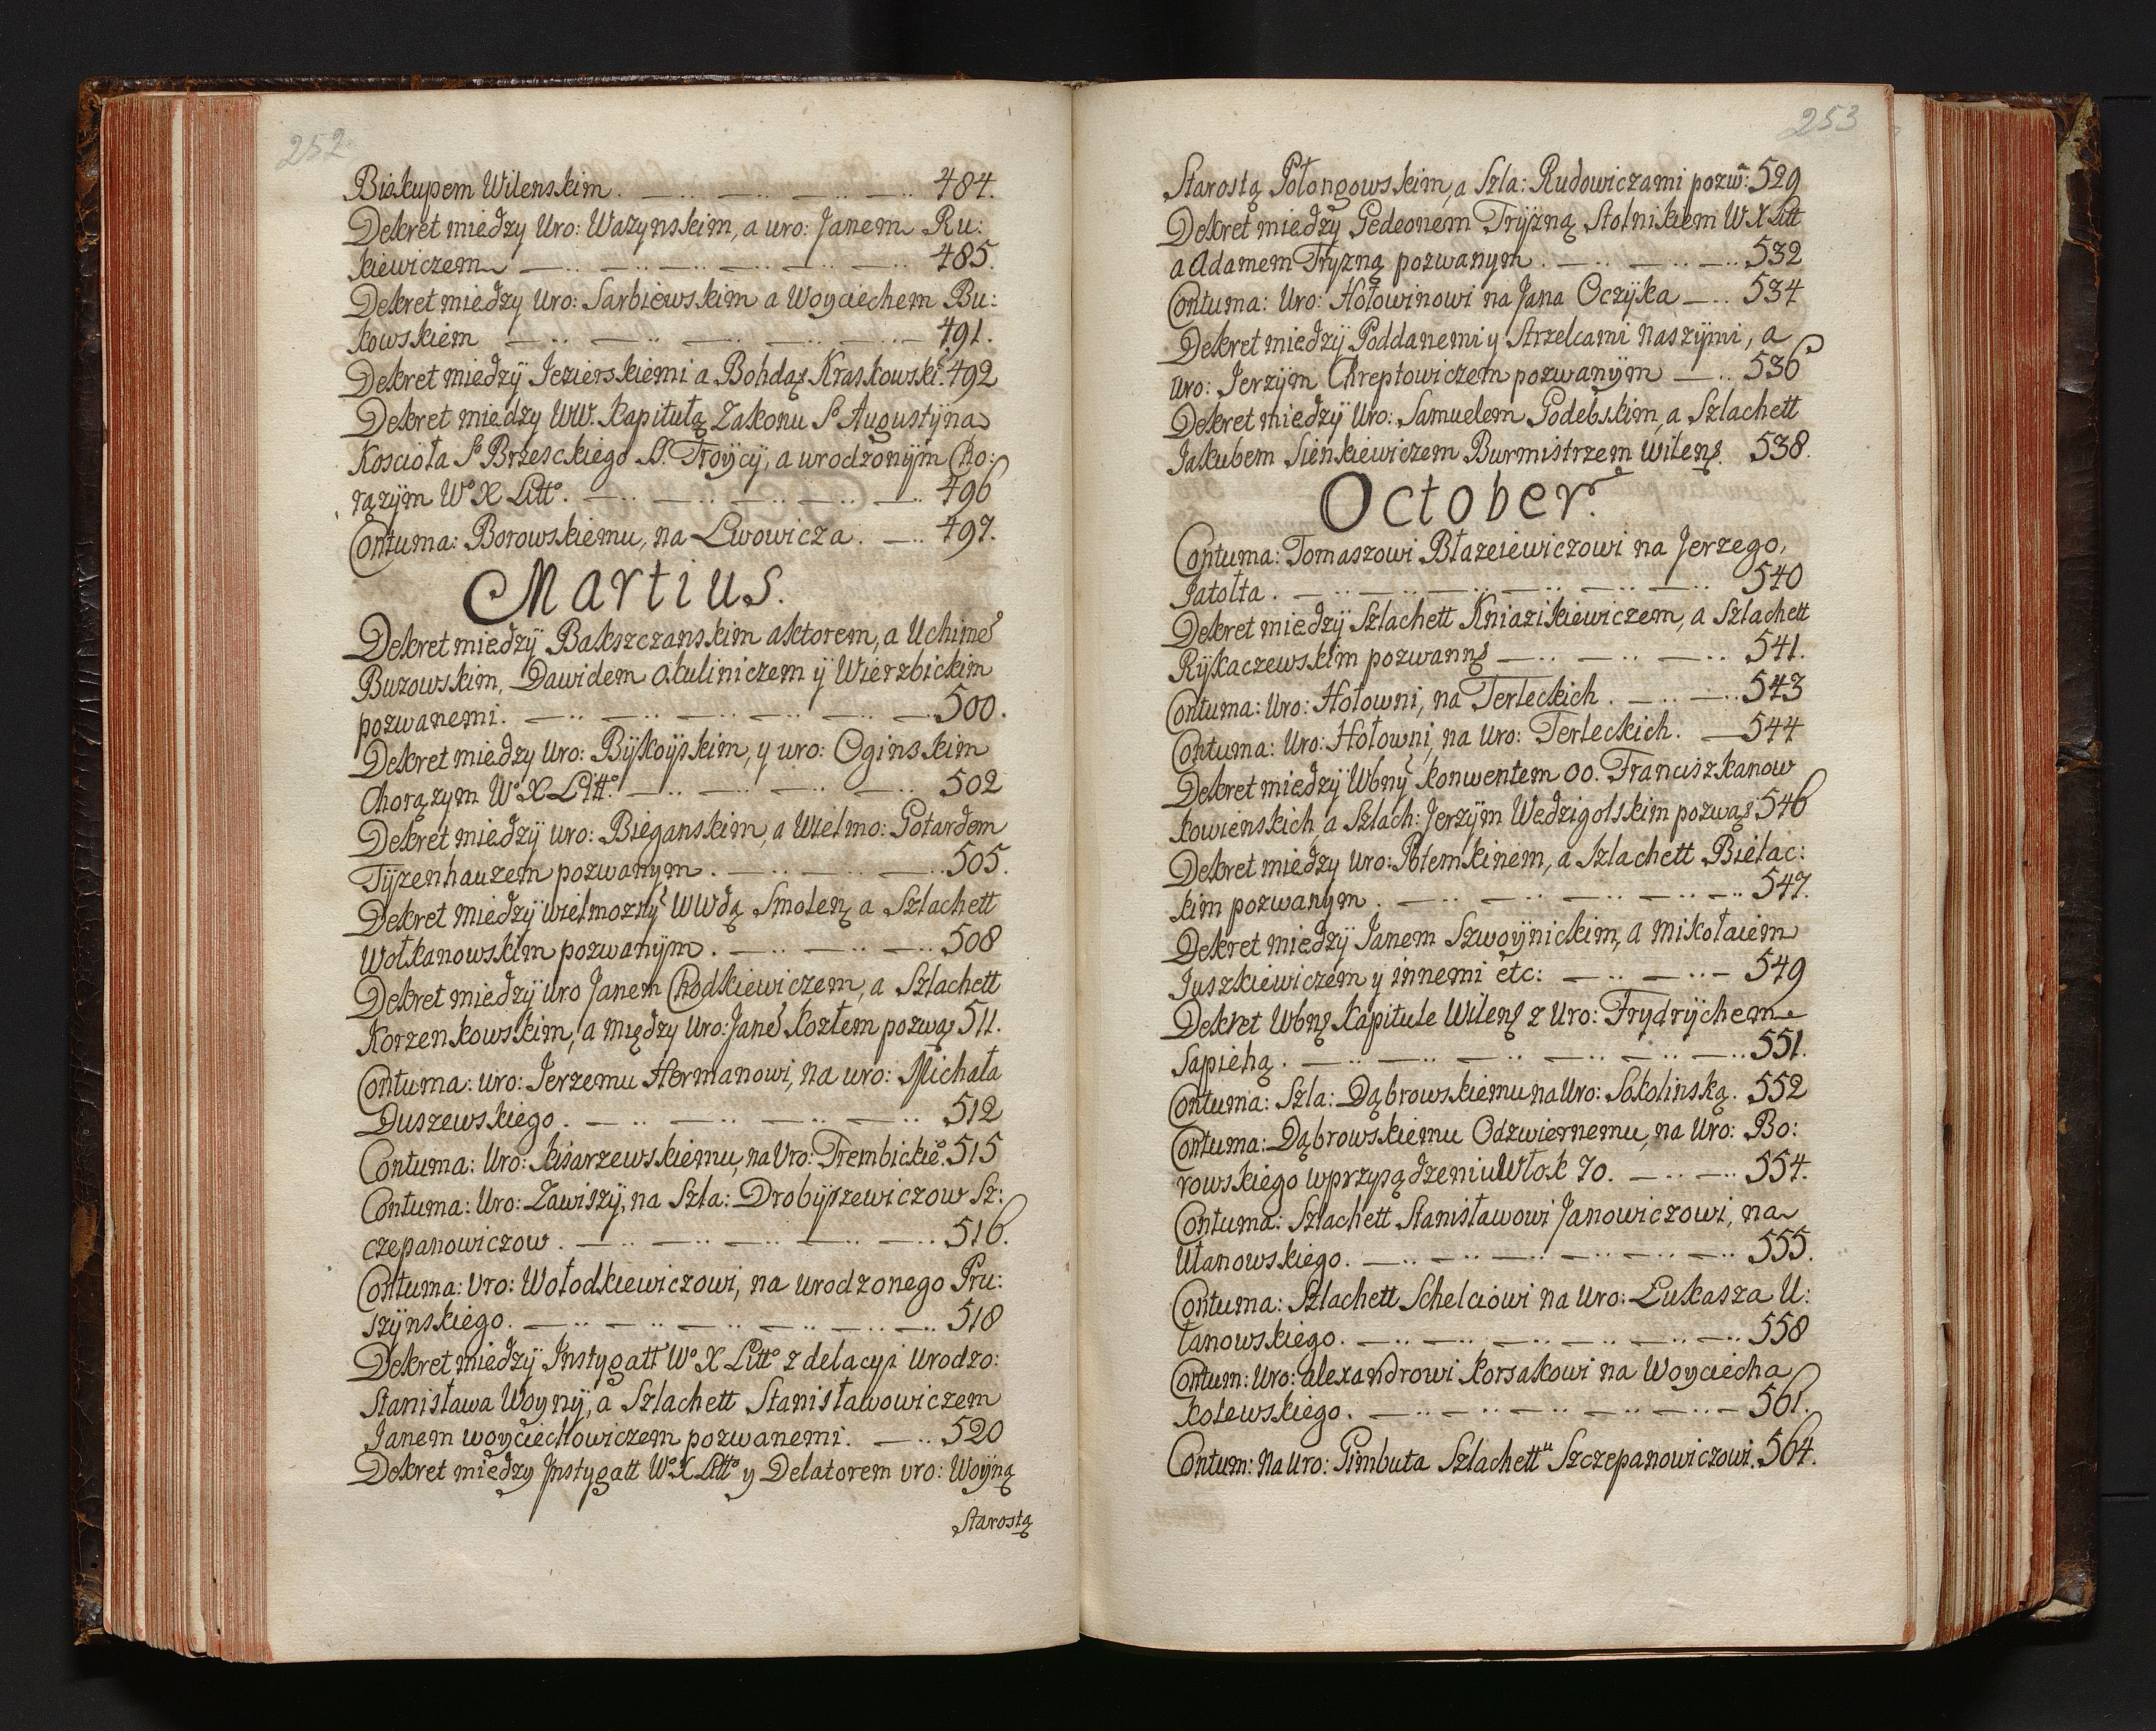 252
Biskupem Wilenskim. 484.
Dekret miedzy Uro: Wazynskim, a uro: Janem Ru:
kiewiczem 485.
Dekret miedzy uro: Sarbiewskim a Woyciechem Bu:
kowskiem 491.
Dekret miedzÿ Jezierskiemi a Bohdaz Kraskowski: 492
Dekret miedzy WW. Kapitułą Zakonu S° Augustÿna
Koscioła S° Brzesckiego S. Troÿcÿ, a urodzonÿm Cho:
rązÿm W° X Litt°. 496
Contuma: Borowskiemu, na Lwowicza. 497.
Martius.
Dekret miedzÿ Bakszczanskim aktorem, a Uchime
Buzowskim, Dawidem Okuliniczem ÿ Wierzbickim
pozwanemi. 500.
Dekret miedzy uro: Bÿkoÿskim, y uro: Oginskim
Chorązym W° X Litt° 502
Dekret miedzÿ uro: Bieganskim, a Wielmo: Gotardem
Tÿzenhauzem pozwanym. 505.
Dekret miedzÿ wielmoznÿ WWdą Smolenz a Szlachett
Wołkanowskim pozwanÿm. 508
Dekret miedzÿ uro Janem Chodkiewiczem, a Szlachett
Korzenkowskim, a między Uro: Jane Kozłem pozwaz 511.
Contuma: uro: Jerzemu Hermanowi, na uro: Michała
Duszewskiego. 512
Contuma: Uro: Kisarzewskiemu, na Uro: Trembickie°. 515
Contuma: Uro: Zawiszÿ, na Szla: Drobÿszewiczow Sz:
czepanowiczow. 516.
Contuma: Uro: Wołodkiewiczowi, na urodzonego Pru:
szÿnskiego. 518
Dekret miedzÿ Jnstygatt W° X Litt° z delacyi Urodzo:
Stanisława Woynÿ, a Szlachett Stanisławowiczem
Janem woyciechowiczem pozwanemi. 520
Dekret miedzy Jnstygatt W° X Litt° y Delatorem uro: Woÿną
Starostą
253
Starostą Połongowskim, a Szla: Rudowiczami pozw: 529
Dekret miedzÿ Gedeonem Trÿzną Stolnikiem W X Litt
a Adamem Tryzną pozwanym. 532
Contuma: Uro: Hołowinowi na Jana Oczÿka 534
Dekret miedzÿ Poddanemi y Strzelcami Naszÿmi, a
uro: Jerzÿm Chreptowiczem pozwanÿm 536
Dekret miedzÿ Uro: Samuelem Podebskim, a Szlachett
Jakubem Sienkiewiczem Burmistrzem Wilenz. 538.
October.
Contuma: Tomaszowi Błazeiewiczowi na Jerzego,
Jatołta. 540
Dekret miedzÿ Szlachett Kniazikiewiczem, a Szlachett
Rÿkaczewskim pozwannz 541.
Contuma: Uro: Hołowni, na Terleckich. 543
Contuma: Uro: Hołowni, na Uro: Terleckich. 544
Dekret miedzÿ Wbnÿ Konwentem OO. Franciszkanow
Kowienskich, a Szlach: Jerzÿm Wedzigolskim pozwaz 546
Dekret miedzy Uro: Potemkinem, a Szlachett Bielac:
kim pozwanym. 547.
Dekret miedzÿ Janem Szwoÿnickim, a Mikołaiem
Juszkiewiczem y innemi etc: 549
Dekret Wbnz Kapitule Wilenz z Uro: Frydrÿchem
Sapiehą. 551.
Contuma: Szla: Dąbrowskiemu na Uro: Sokolinską. 552
Contuma: Dąbrowskiemu Odzwiernemu, na Uro: Bo:
rowskiego w przysądzeniu Włok 70. 554.
Contuma: Szlachett Stanisławowi Janowiczowi, na
Ułanowskiego. 555.
Contuma: Szlachett Schelciowi na Uro: Łukasza U:
łanowskiego. 558
Contum: Uro: alexandrowi Korsakowi na Woyciecha
Kolewskiego. 561.
Contum: Na Uro: Gimbuta Szlachett Szczepanowiczowi. 564.